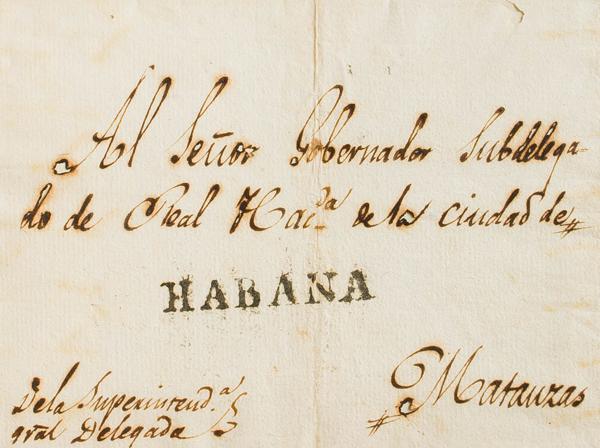 Al Señor Gobernador Subdelega-
do de Real Hac.da de la ciudad de
HABANA
Matanzas
De la Superintend.a
gral Delegada